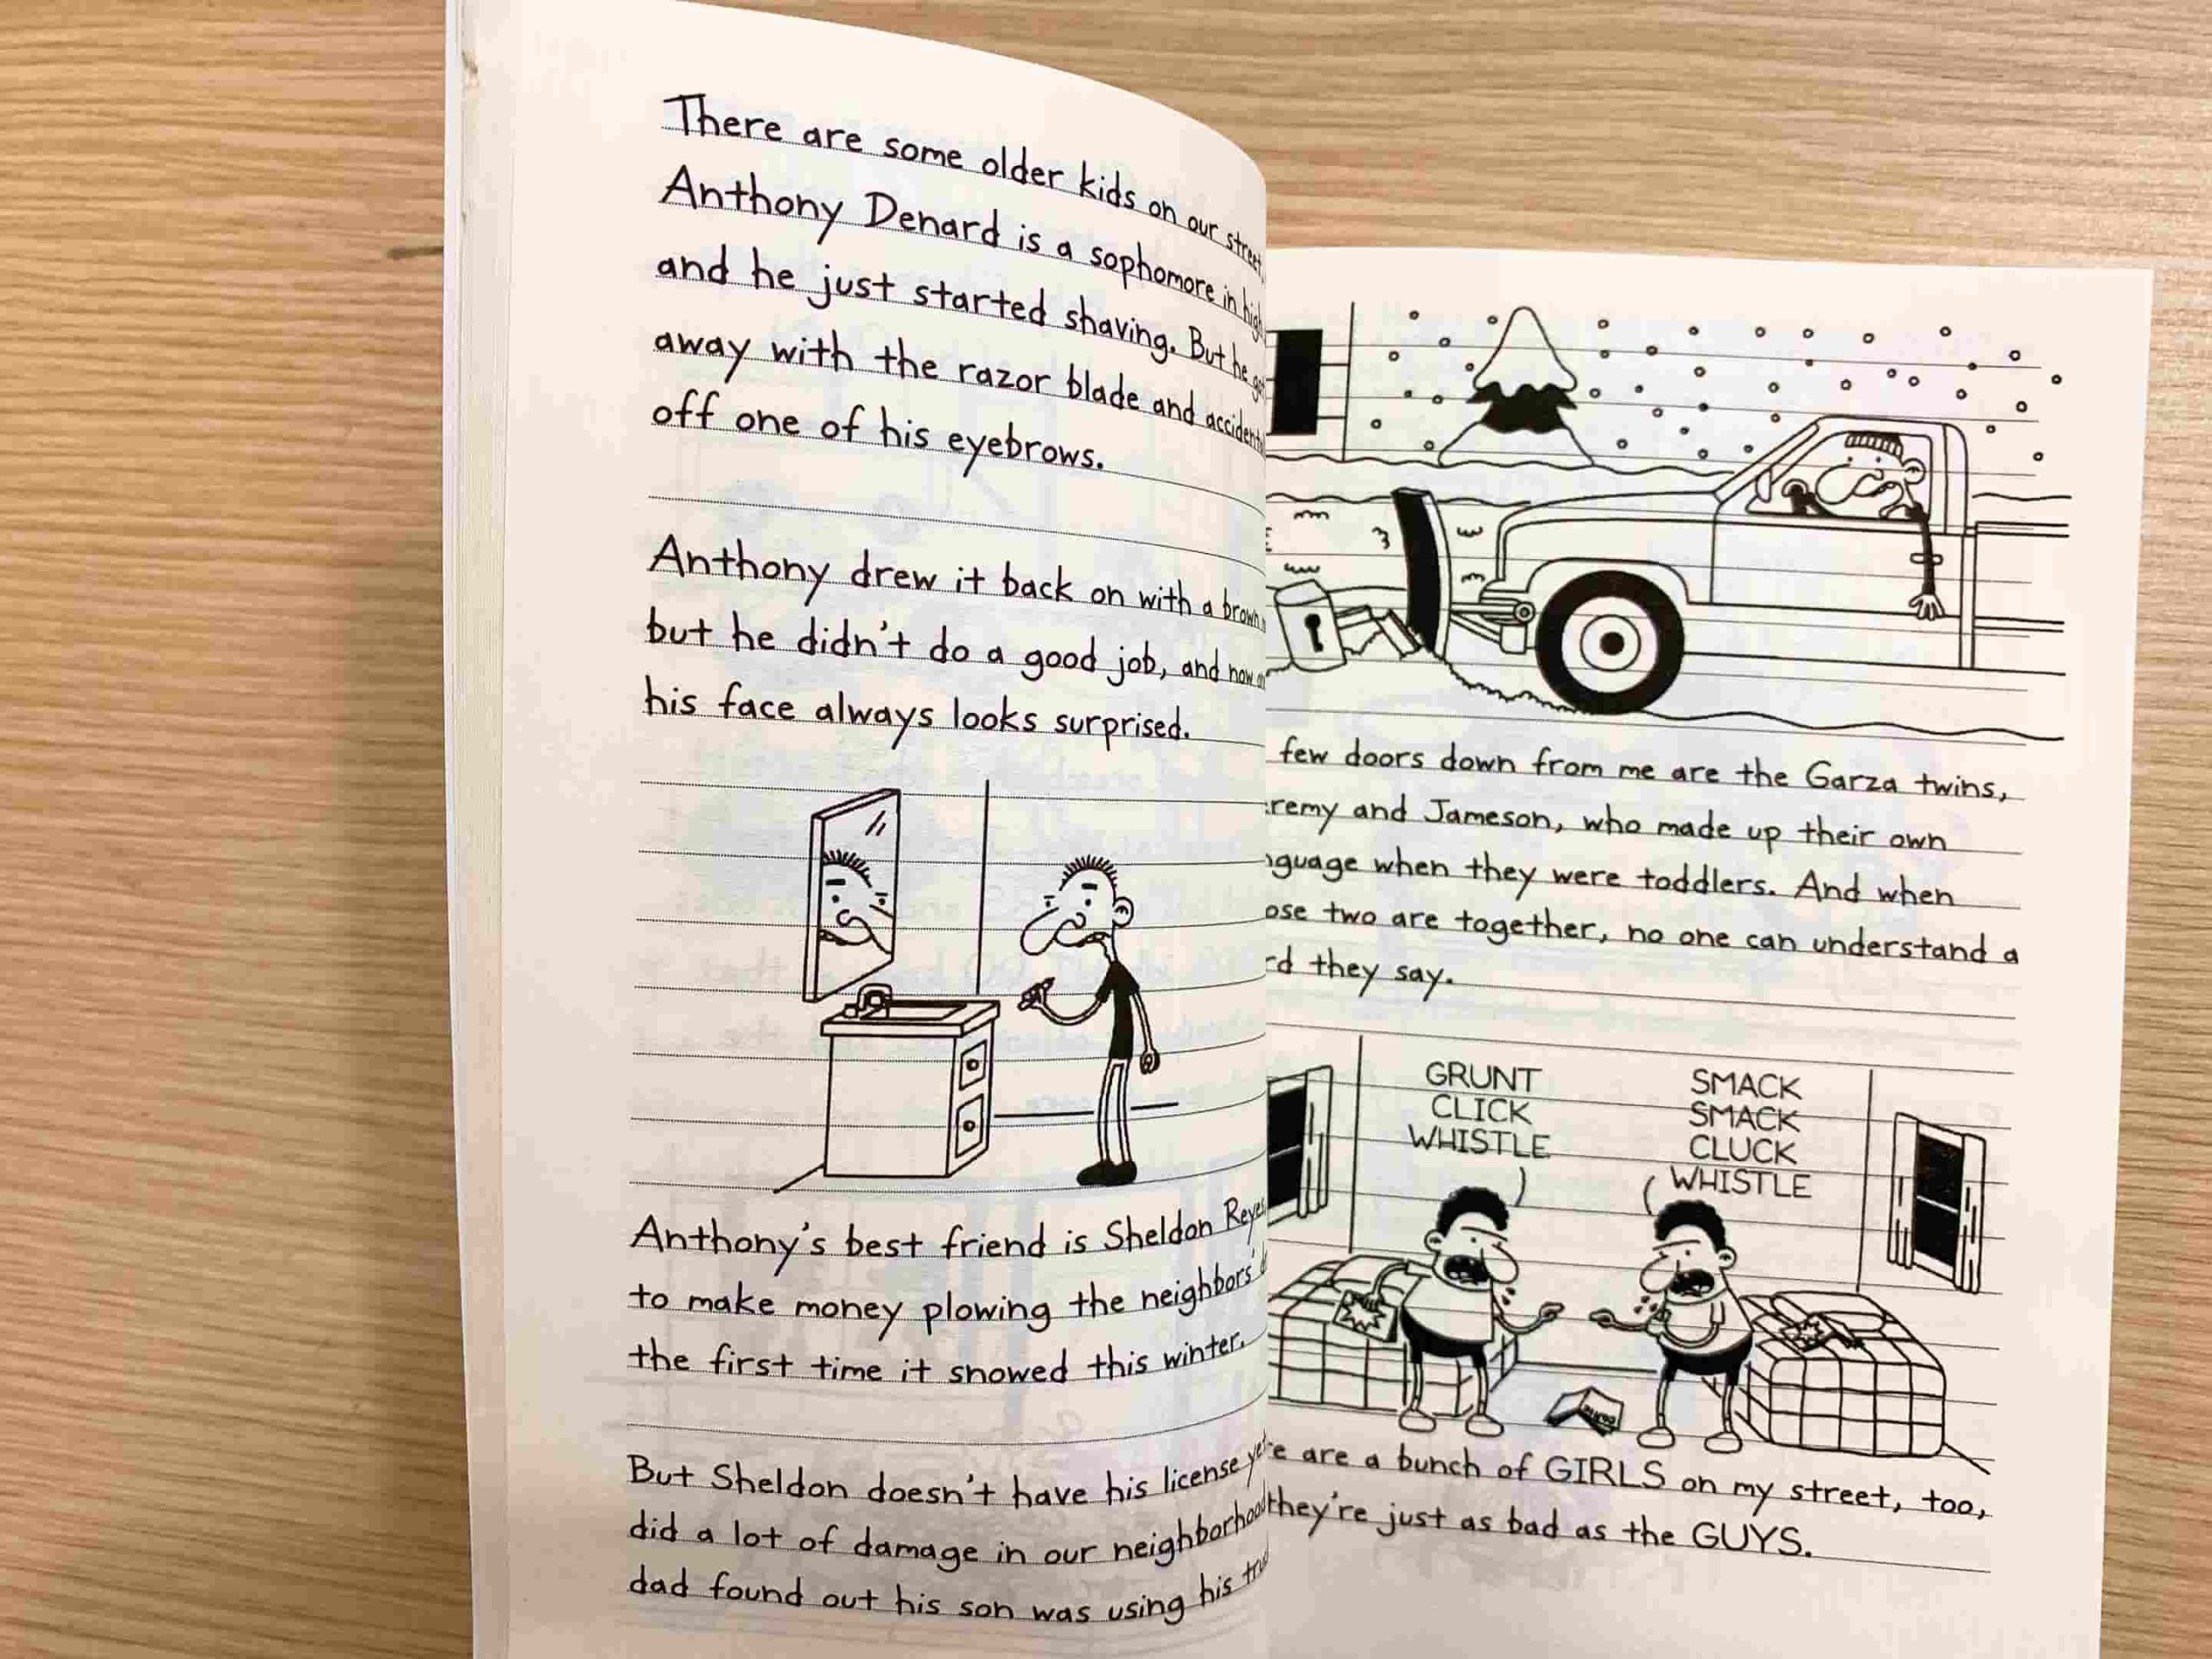 There are some older kids on our street,
Anthony Denard is a sophomore in high
and he just started shaving. But he got
away with the razor blade and
off one of his eyebrows.
Anthony drew it back on with a brown
but he didn't do a good job, and now
his face always looks surprised.
Anthony's best friend is Sheldon Reyes
to make money plowing the neighbors'
the first time it snowed this winter.
But Sheldon doesn't have his license yet
did a lot of damage in our neighborhood
dad found out his son was using his
few doors down from me are the Garza twins,
remy and Jameson, who made up their own
guage when they were toddlers. And when
ose two are together, no one can understand a
rd they say.
GRUNT
CLICK
WHISTLE
SMACK
SMACK
CLUCK
WHISTLE
e are a bunch of GIRLS on my street, too,
they're just as bad as the GUYS.